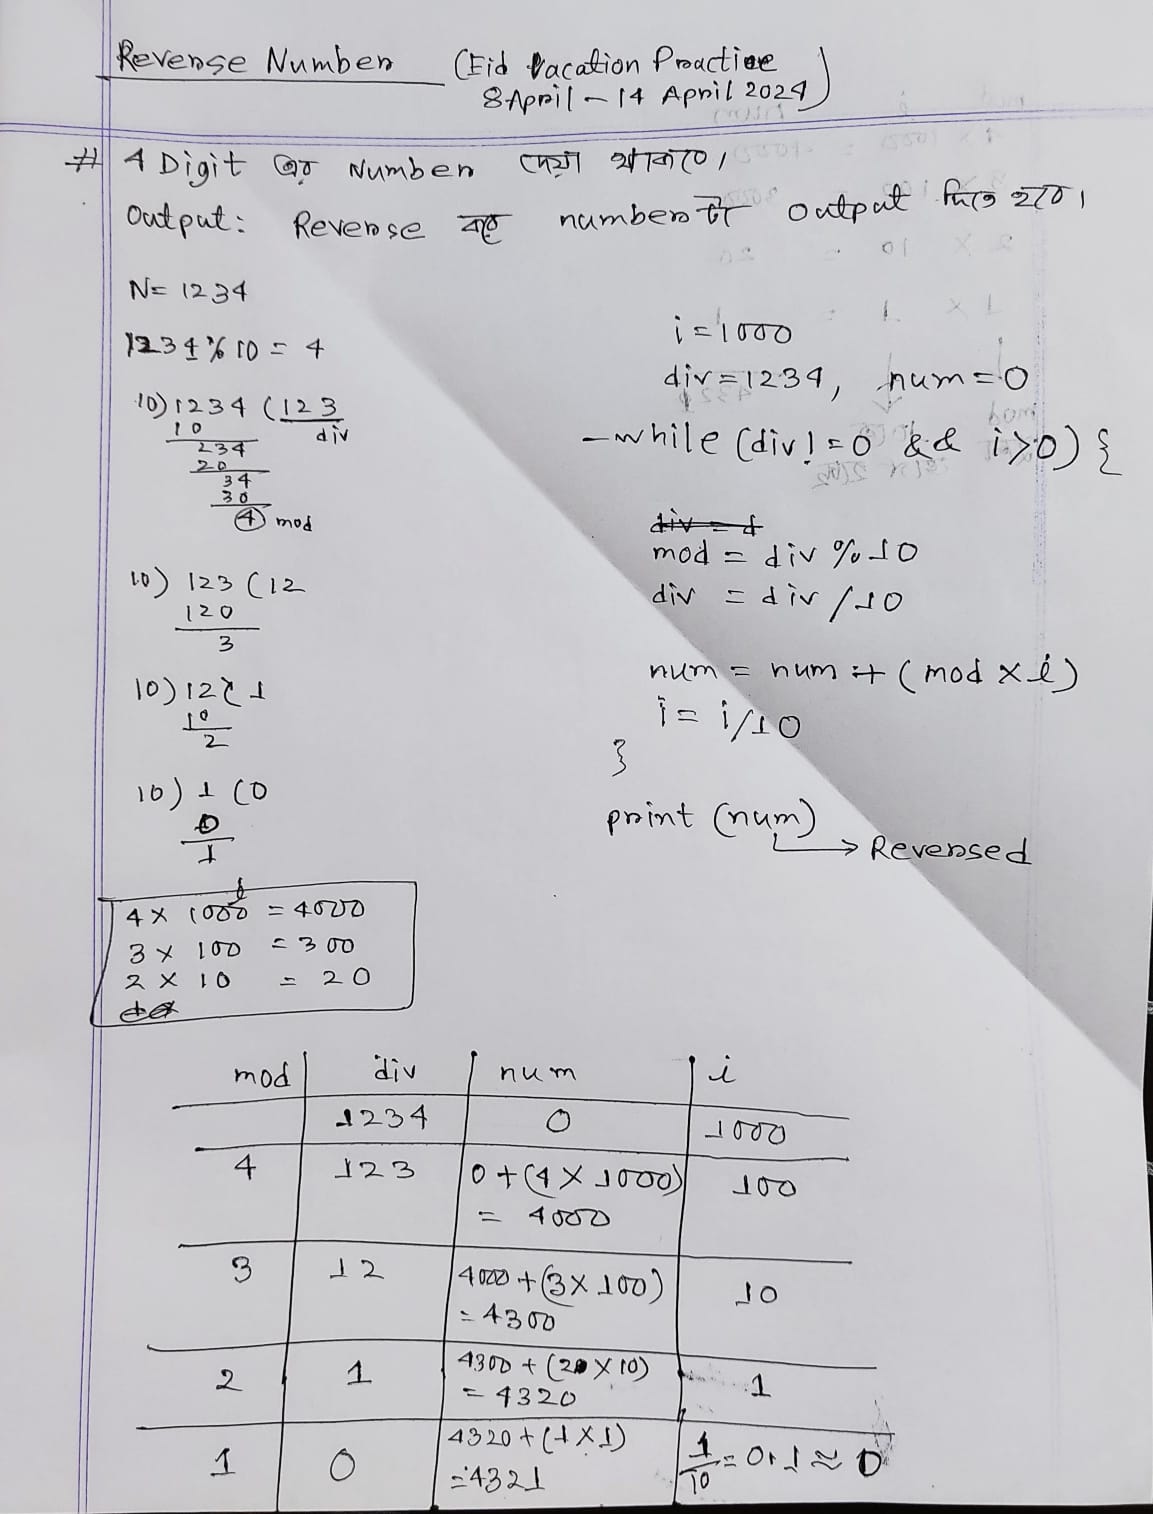 Reverse Number (Eid Vacation Practice
8 April - 14 April 2024)
# 4 Digit এর Number দেয়া থাকবে।
Output: Reverse করে number টা output দিতে হবে।
N = 1234
1234 % 10 = 4
10) 1234 (123
10 div
234
20
34
30
4 mod
10) 123 (12
120
3
10) 12 ( 1
10
2
10) 1 (0
0
1
i
4 × 1000 = 4000
3 × 100 = 300
2 × 10 = 20
i = 1000
div = 1234, num = 0
- while (div != 0 && i > 0) {
div = d
mod = div % 10
div = div / 10
num = num + (mod × i)
i = i/10
}
print (num)
→ Reversed
mod div num i
1234 0 1000
4 123 0 + (4 × 1000) 100
= 4000
3 12 4000 + (3 × 100) 10
= 4300
2 1 4300 + (2 × 10) 1
= 4320
1 0 4320 + (1 × 1) 1/10 = 0.1 ≈ 0
= 4321